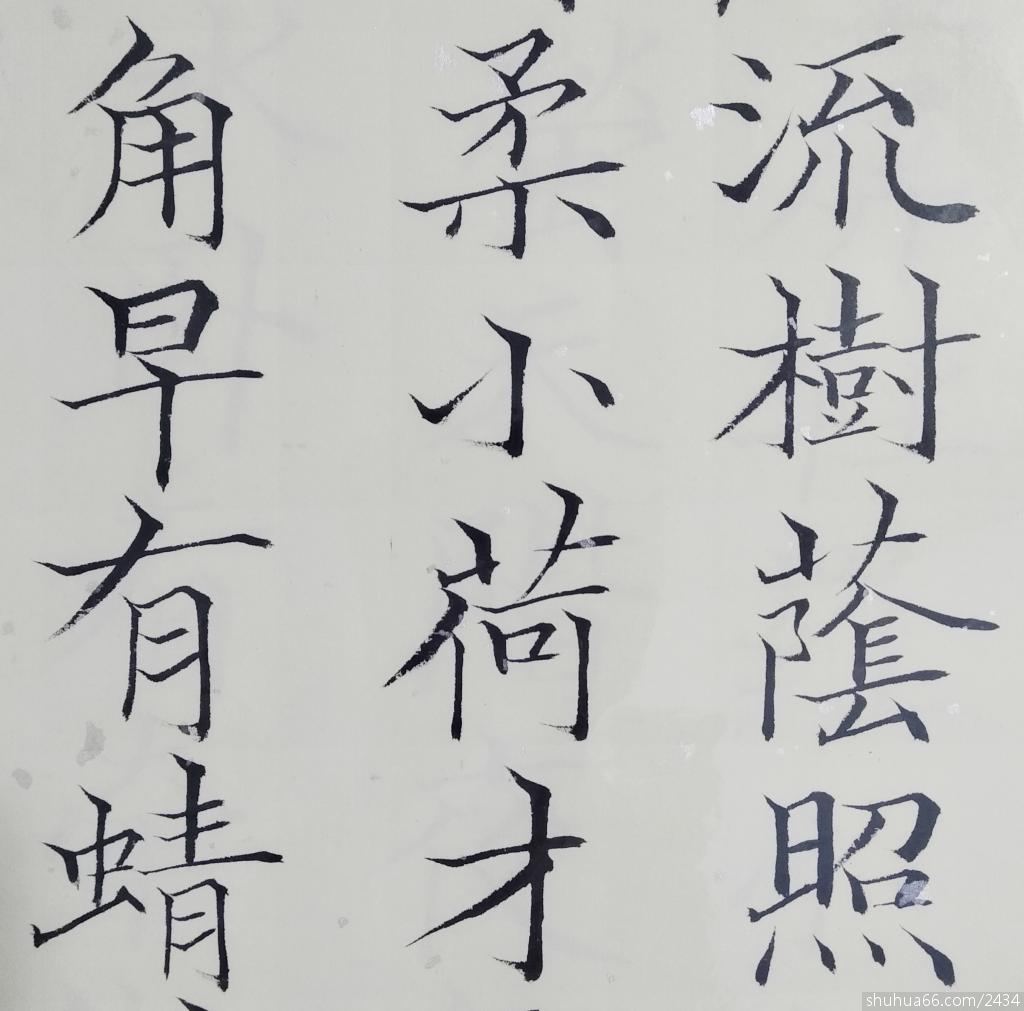 流樹蔭照
柔小荷才
角早有蜻
shuhua66.com/2434